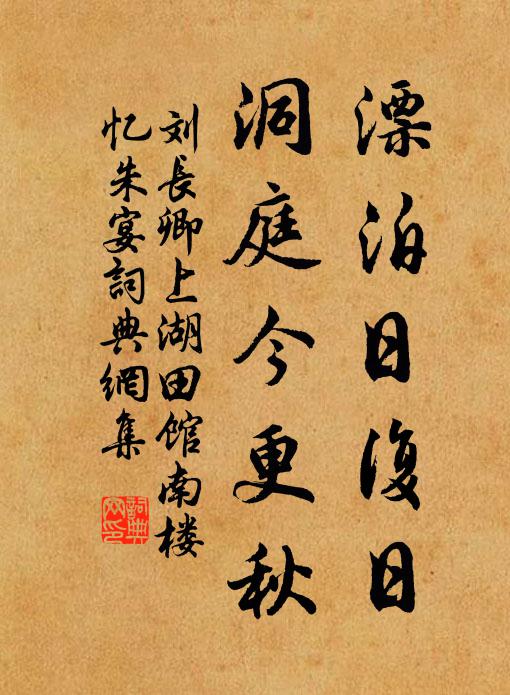 漂泊日復日
洞庭今更秋
刘長卿上湖田館南楼
忆朱宴詞典網集
詞典
网印